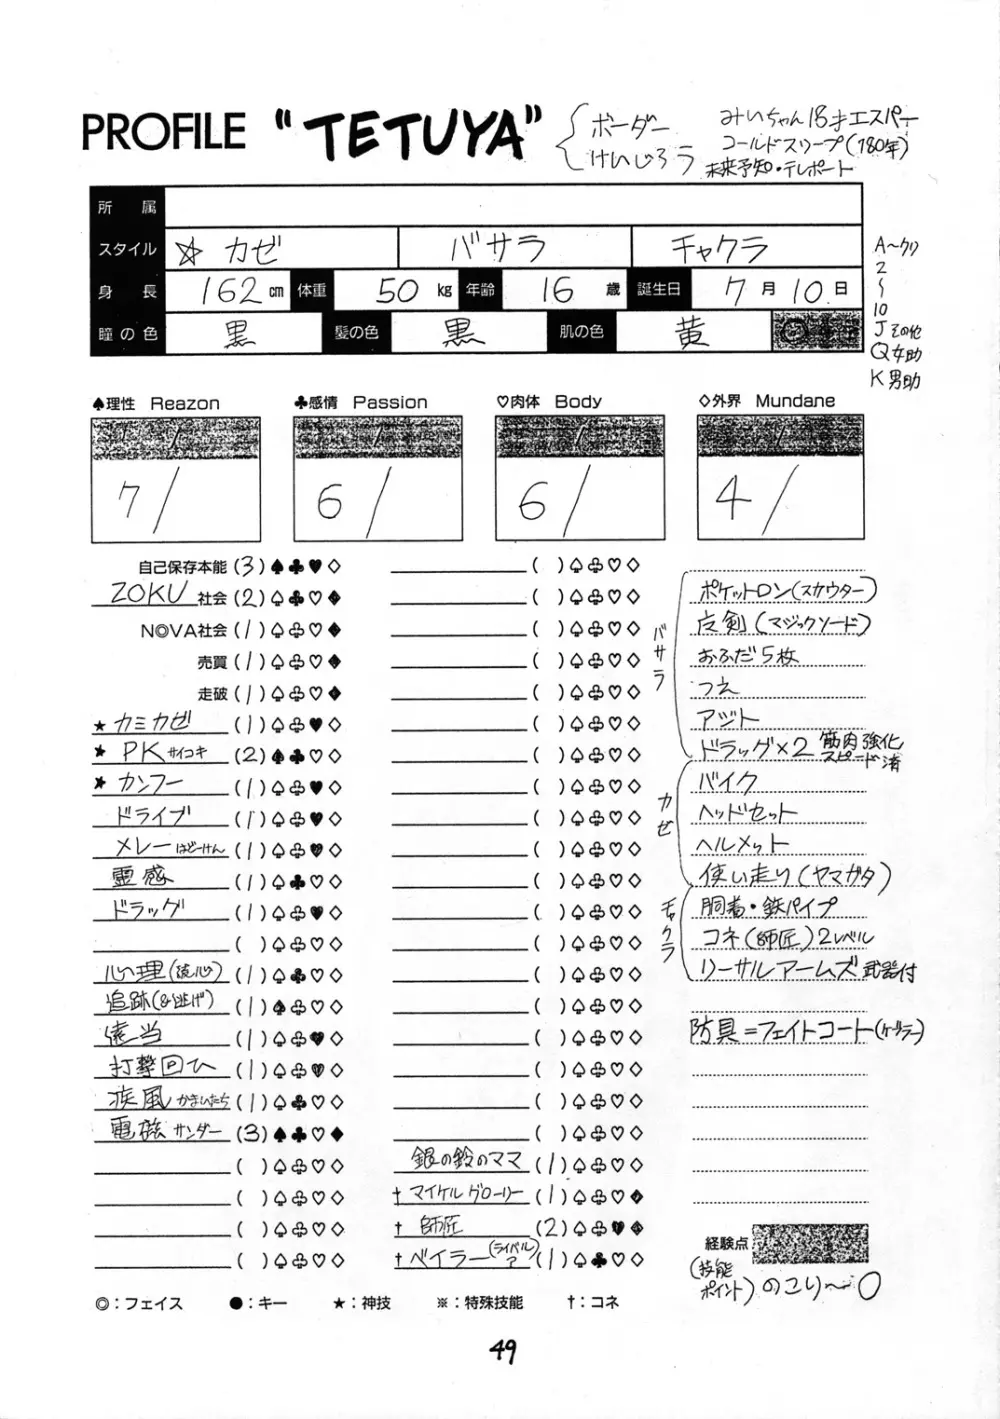 PROFILE "TETUYA"
ボーダー
けいじろう
みいちゃん18才エスパー
コールドスリープ(180年)
未来予知・テレポート
所属
スタイル ☆カゼ バサラ チャクラ
身長 162cm 体重 50kg 年齢 16歳 誕生日 7月10日
瞳の色 黒 髪の色 黒 肌の色 黄
A〜クリ
2
〜
10
Jその他
Q女助
K男助
♠理性 Reazon ♣感情 Passion ♡肉体 Body ◇外界 Mundane
7/ 6/ 6/ 4/
自己保存本能(3)♠♣♥◇
ZOKU社会(2)♤♣♡♦
N◎VA社会(1)♤♧♡♦
売買(1)♤♧♡♦
走破(1)♤♧♡♦
★カミカゼ(1)♤♧♥◇
★PKサイコキ(2)♠♣♡◇
★カンフー(1)♤♧♥◇
ドライブ(1)♤♧♥◇
メレーはどーけん(1)♤♧♥◇
霊感(1)♤♣♡◇
ドラッグ(1)♤♧♥◇
( )♤♧♡◇
心理(読心)(1)♤♣♡◇
追跡(&逃げ)(1)♠♧♡◇
(1)♤♧♥◇
打撃回ひ(1)♤♧♥◇
疾風かまいたち(1)♤♣♡◇
電磁サンダー(3)♠♣♡♦
( )♤♧♡◇
( )♤♧♡◇
( )♤♧♡◇
( )♤♧♡◇
( )♤♧♡◇
( )♤♧♡◇
( )♤♧♡◇
( )♤♧♡◇
( )♤♧♡◇
( )♤♧♡◇
( )♤♧♡◇
( )♤♧♡◇
( )♤♧♡◇
( )♤♧♡◇
( )♤♧♡◇
( )♤♧♡◇
( )♤♧♡◇
( )♤♧♡◇
( )♤♧♡◇
( )♤♧♡◇
( )♤♧♡◇
( )♤♧♡◇
( )♤♧♡◇
銀の鈴のママ(1)♤♧♡◇
†マイケルグローリー(1)♤♧♡♦
†師匠(2)♤♧♥♦
†ベイラー(ライバルア)(1)♤♣♡◇
バサラ
ポケットロン(スカウター)
(マジックソード)
おふだ5枚
つえ
アジト
ドラッグ×2 筋肉強化
スピード済
カゼ
バイク
ヘッドセット
ヘルメット
使い走り(ヤマガタ)
チャクラ
胴着・鉄パイプ
コネ(師匠)2レベル
リーサルアームズ武器付
防具=フェイトコート(ケブラー)
経験点
(技能
ポイント)のこり〜0
◎:フェイス ●:キー ★:神技 ※:特殊技能 †:コネ
49